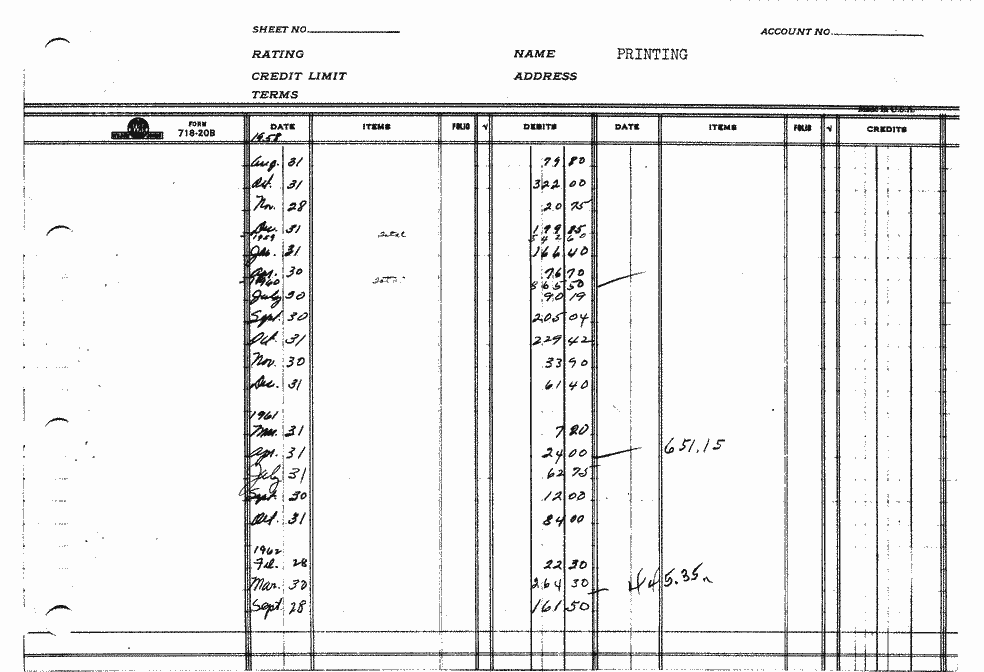 SHEET NO. ACCOUNT NO.
RATING NAME PRINTING
CREDIT LIMIT ADDRESS
TERMS
FORM 718-20B DATE ITEMS FOLIO √ DEBITS DATE ITEMS FOLIO √ CREDITS
1958
Aug. 31 79 80
Oct. 31 322 00
Nov. 28 20 75
Dec. 31 199 85
1959 total 542 60
Jan. 31 166 40
Apr. 30 76 70
1960 total 865 50
July 30 90 19
Sept. 30 205 04
Oct 31 229 42
Nov. 30 33 90
Dec. 31 61 40
1961
Mar. 31 7 20
Apr. 31 24 00 651.15
July 31 62 75
Sept. 30 12 00
Oct. 31 84 00
1962
Feb. 28 22 30
Mar. 30 264 30 445.35
Sept 28 161 50